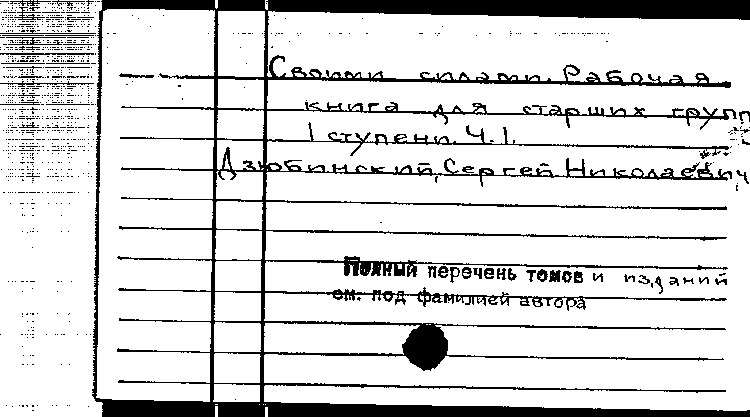 Своими силами. Рабочая
книга для старших групп
I ступени. Ч. I.
Дзюбинский, Сергей Николаевич,
Полный перечень томов и изданий
см. под фамилией автора